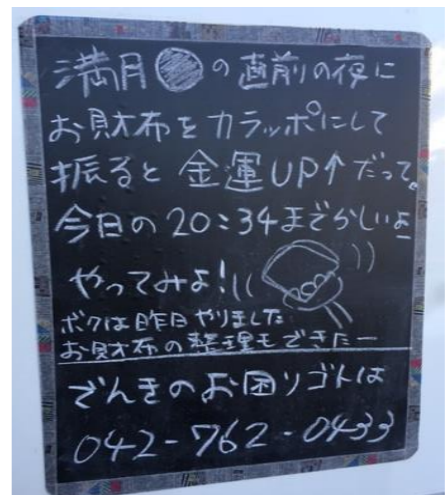 満月の直前の夜に
お財布をカラッポにして
振ると金運UP↑だって。
今日の20:34までらしいよ
やってみよ!
ボクは昨日やりました
お財布の整理もできたー
でんきのお困りゴトは
042-762-0433